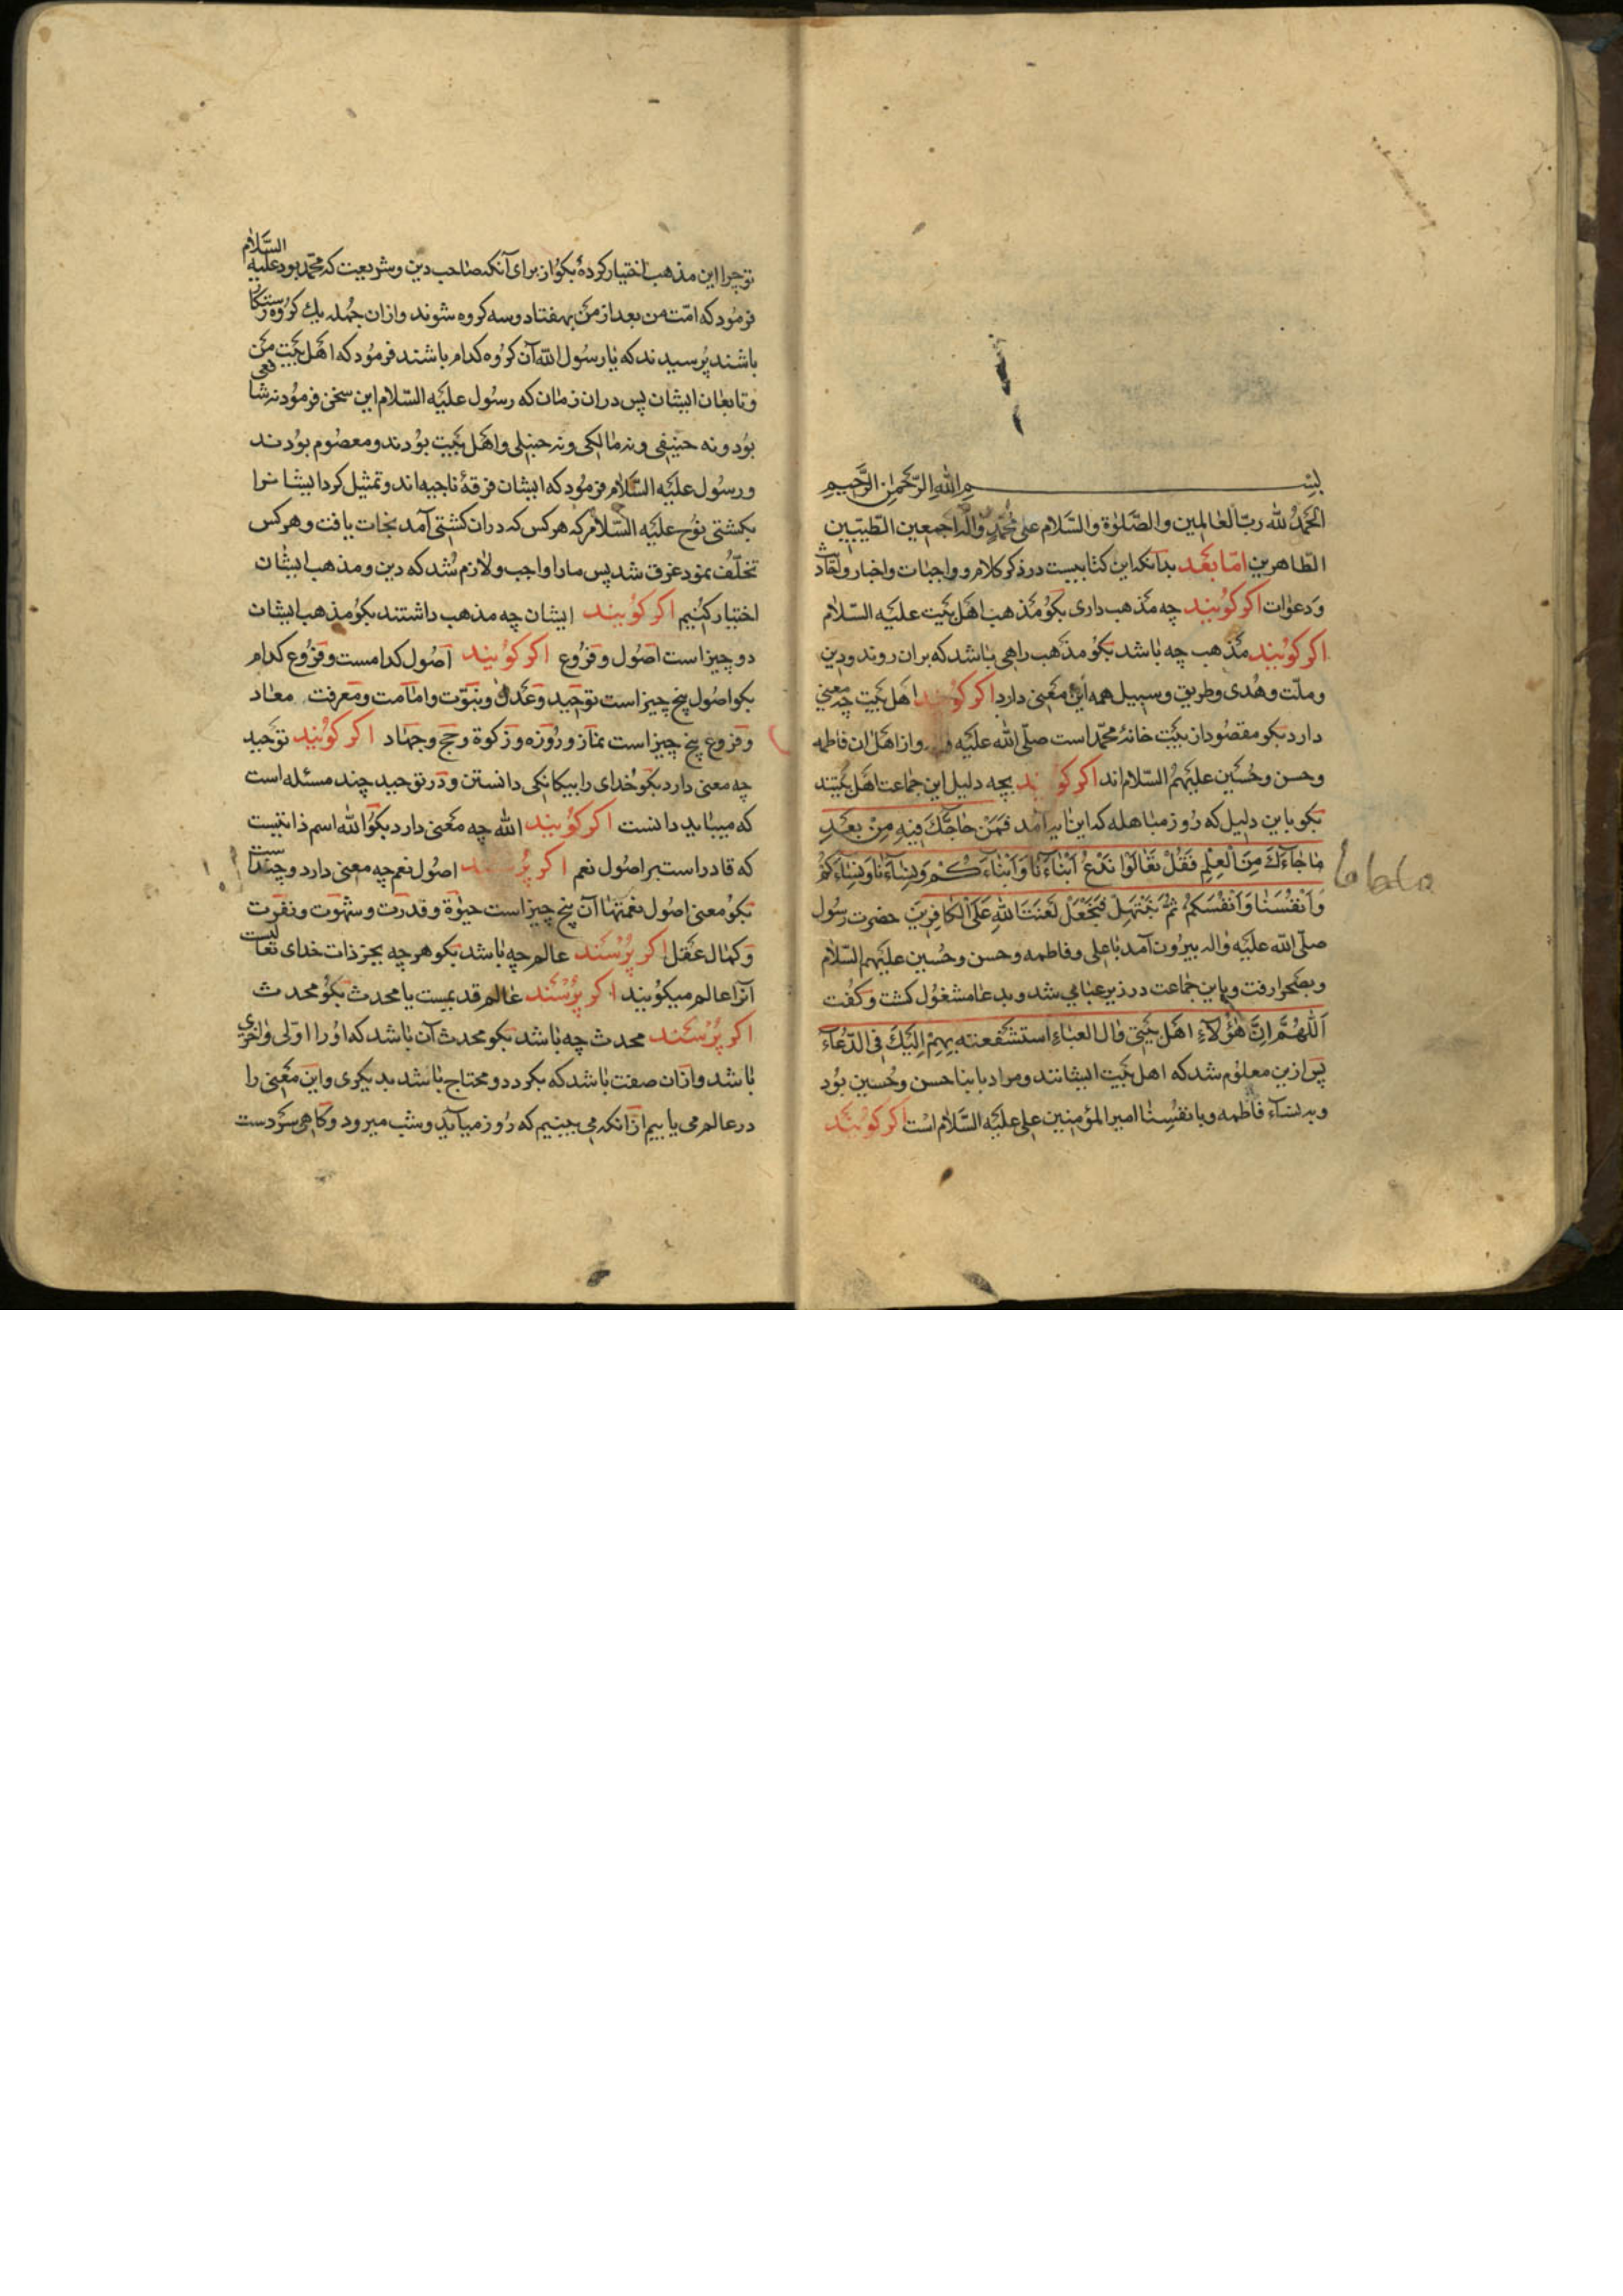 بسم الله الرحمن الرحیم
الحَمدُ لله ربّ العالمین والصّلوٰة والسّلام علی محمّدٍ واله اجمعین الطّیبین
الطّاهرین امّا بَعْد بدانکه این کتابیست در ذکر کلام و واجبات واخبار واعتقادات
وَدعوات اکر کوُیند چه مَذهب داری بکوُ مَذهب اهَل بَیت علیَه السّلام
اکر کوُیند مَذهب چه باشد بکو مذَهب راهی باشد که بران روند ودین
وملّت وهُدی وطریق وسبیل همه این مَعنی دارد اکر کوُیند اهَل بَیت چه معنی
دارد بکو مقصُود از بیَت خانهٔ محمّد است صلّی الله علیَه و واز اهَل ان فاطمه
وحسن وحُسَین علیَهمُ السّلام اند اکر کوُیند بچه دلیل این جماعت اهَل بَیتند
بکو باین دلیل که روُز مباهله که این ایه آمد فَمَن حٰاجَّكَ فیِهِ مِنْ بَعَدِ
مٰا جٰاءَكَ مِنَ الْعِلْمِ فَقُلْ تَعٰالَوْا نَدْعُ اَبْنٰاءَنٰا وَاَبْنٰاءَكُمْ وَنِسٰاءَنٰا وَنِسٰاءَكُمْ
وَاَنْفُسَنٰا وَاَنْفُسَكُمْ ثُمَّ نَبْتَهِلْ فَنَجْعَلْ لَعْنَتَ اللهِ عَلَی الْكٰافِرِینَ حضرت رسُول
صلّی الله علیَه واله بیروُن آمد با علی وفاطمه وحسن وحُسین علیَهم السّلام
وبصَحرا رفت وباین جماعت در زیر عبا می شد وبدعا مشغوُل کشت وکفُت
اَللّٰهُمَّ اِنَّ هٰؤُلآءِ اهَل بَیَتی وٰال العبٰاءِ استشفعته بِهِمْ اِلَیْكَ فِی الدُّعٰاءِ
پَس ازین معلوُم شد که اهل بَیت ایشانند ومراد بابنا حسن وحُسین بوُد
وبه نسآء فاطمه وبانفسِنٰا امیر المؤمنین علی علیَه السَّلام است اکر کوُیَند
مباهله
توُ چرا این مذهب اختیار کردهٔ بکوُ از برای آنکه صٰاحب دین وشریعت که محمّد بود علیه السَّلام
فرموُد که امّت من بعد از منَ بهفتاد وسه کروه شوند وازان جمُله یك کروُه رستکار
باشند پُرسیدند که یٰا رسُول الله آن کروُه کدام باشند فرموُد که اهَل بَیَت مَن
وتابعٰان ایشان پس دران زمٰان که رسُول علیَه السّلام این سخن فرموُد نه شافعی
بوُد ونه حنیفی ونه مٰالکی ونه حنبلی واهَل بیَت بوُدند ومعصُوم بوُدند
ورسُول علیَه السَّلام فرموُد که ایشان فرقهٔ ناجیه اند وتمثیل کرد ایشانرا
بکشتی نوُح علیَه السَّلام که هر کس که دران کشتی آمد نجات یافت وهر کس
تخلّف نمود غرق شد پس مارا واجب ولازم شُد که دین ومذهب ایشٰان
اختیار کنیُم اکر کوُیند ایشان چه مذهب داشتند بکوُ مذهب ایشان
دو چیز است اصُول وفروُع اکر کوُیند اصُول کدامست وفروُع کدام
بکو اصُول پنج چیز است توَحید وعَدل ونبوّت وامٰامت ومَعرفت معٰاد
وفروُع پنج چیز است نمٰاز وروُزه وزکوة وحَج وجهٰاد اکر کوُیند توَحید
چه معنی دارد بکوُ خُدای را بیکانکی دانستن ودر توَحید چند مسئله است
که میباید دانست اکر کوُیند الله چه مَعنی دارد بکوُ الله اسم ذاتیست
که قادر است بر اصُول نعم اکر پُرسند اصُول نعم چه معنی دارد وچند است
بکوُ معنی اصُول نعمتها آن پنج چیز است حیوٰة وقدرَت وشهوَت ونفرَت
وَکمٰال عَقل اکر پُرسَند عالم چه باشد بکو هر چه بجز ذات خدای تعالیست
آنرا عالم میکوُیند اکر پُرسَند عٰالم قدیمست یا محدث بکوُ محدث
اکر پُرسَند محدث چه باشد بکو محدث آن باشد که اوُرا اوّلی واخری
باشد وازان صفت باشد که بکردد ومحتاج باشد بدیکری واین مَعنی را
در عالم می یابیم ازانکه می بینیم که روُز میآید وشب میرود وکاهی سَرد است